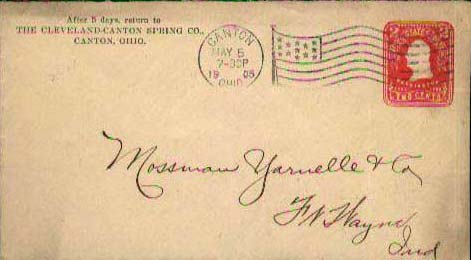 After 5 days, return to
THE CLEVELAND-CANTON SPRING CO.,
CANTON, OHIO.
CANTON
MAY 5
7-30P
1905
OHIO
TWO CENTS
Mossman Yarnelle & Co
Ft Wayne
Ind